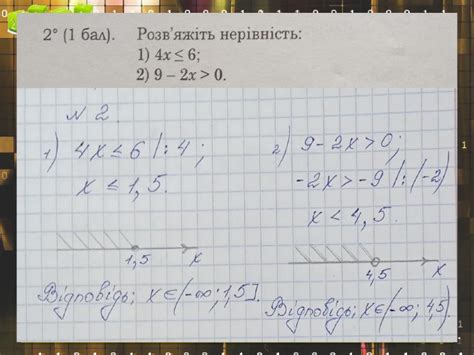 2° (1 бал). Розв'яжіть нерівність:
1) 4x ≤ 6;
2) 9 – 2x > 0.
№ 2.
1) 4x ≤ 6 | : 4 ;
x ≤ 1,5.
1,5 x
Відповідь: x ∈ (-∞; 1,5].
2) 9 - 2x > 0;
-2x > -9 | : (-2)
x < 4,5.
4,5 x
Відповідь: x ∈ (-∞; 4,5).